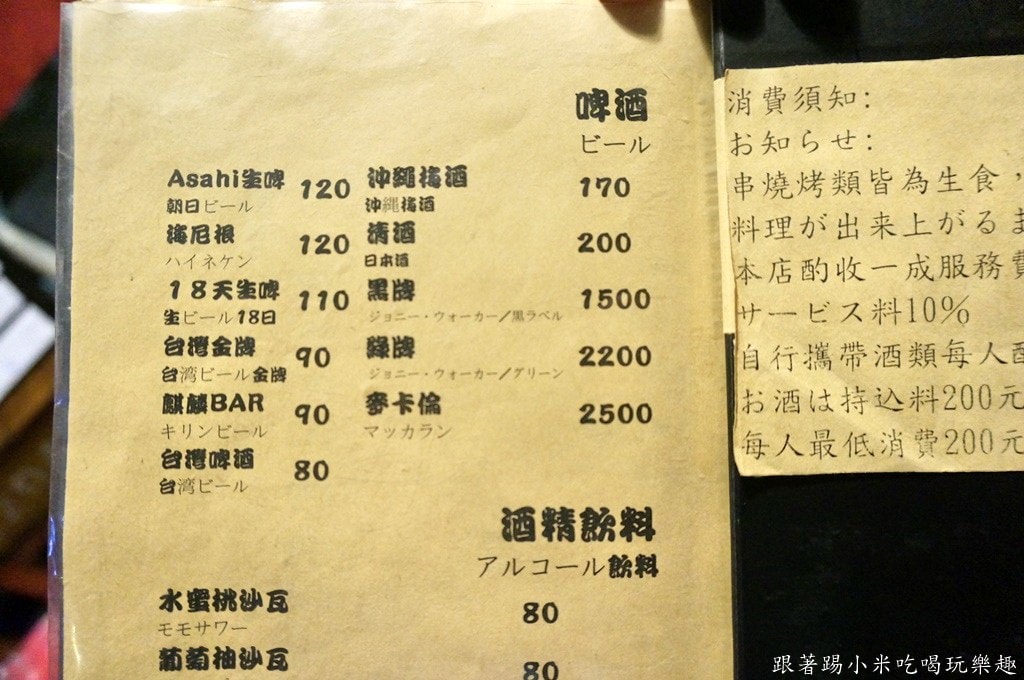 啤酒
ビール
Asahi生啤 120
朝日ビール
海尼根 120
ハイネケン
18天生啤 110
生ビール18日
台灣金牌 90
台湾ビール金牌
麒麟BAR 90
キリンビール
台灣啤酒 80
台湾ビール
沖繩梅酒 170
沖縄梅酒
清酒 200
日本酒
黑牌 1500
ジョニー・ウォーカー/黒ラベル
綠牌 2200
ジョニー・ウォーカー/グリーン
麥卡倫 2500
マッカラン
酒精飲料
アルコール飲料
水蜜桃沙瓦 80
モモサワー
葡萄柚沙瓦 80
消費須知:
お知らせ:
串燒烤類皆為生食,
料理が出来上がるま
本店酌收一成服務費
サービス料10%
自行攜帶酒類每人酌
お酒は持込料200元
每人最低消費200元
跟著踢小米吃喝玩樂趣